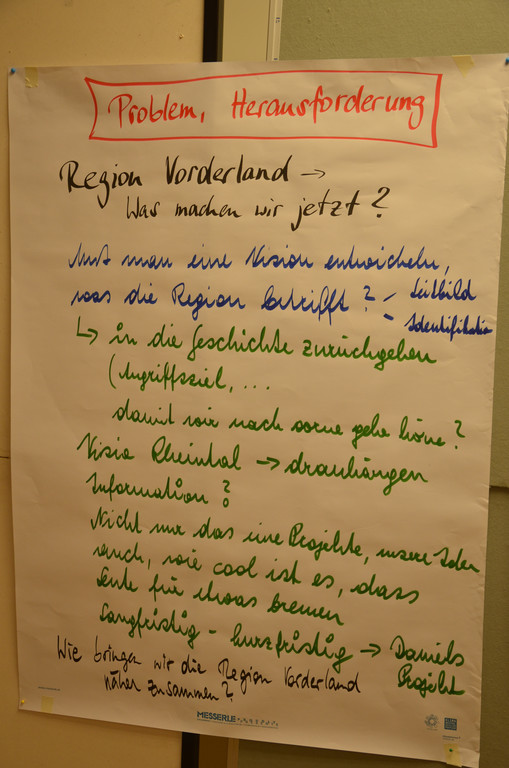 Problem, Herausforderung
Region Vorderland →
Was machen wir jetzt?
Muss man eine Vision entwickeln,
was die Region betrifft? – Leitbild
– Identifikation
↳ in die Geschichte zurückgehen
(Angriffsziel, ...
damit wir nach vorne gehe könne?
Visio Rheintal → dranhängen
Information?
Nicht nur das eine Projekte, unsere Idee
auch, wie cool ist es, dass
Leute für etwas brennen
Langfristig – kurzfristig → Daniels
Projekt
Wie bringen wir die Region Vorderland
näher zusammen?
MESSERLE